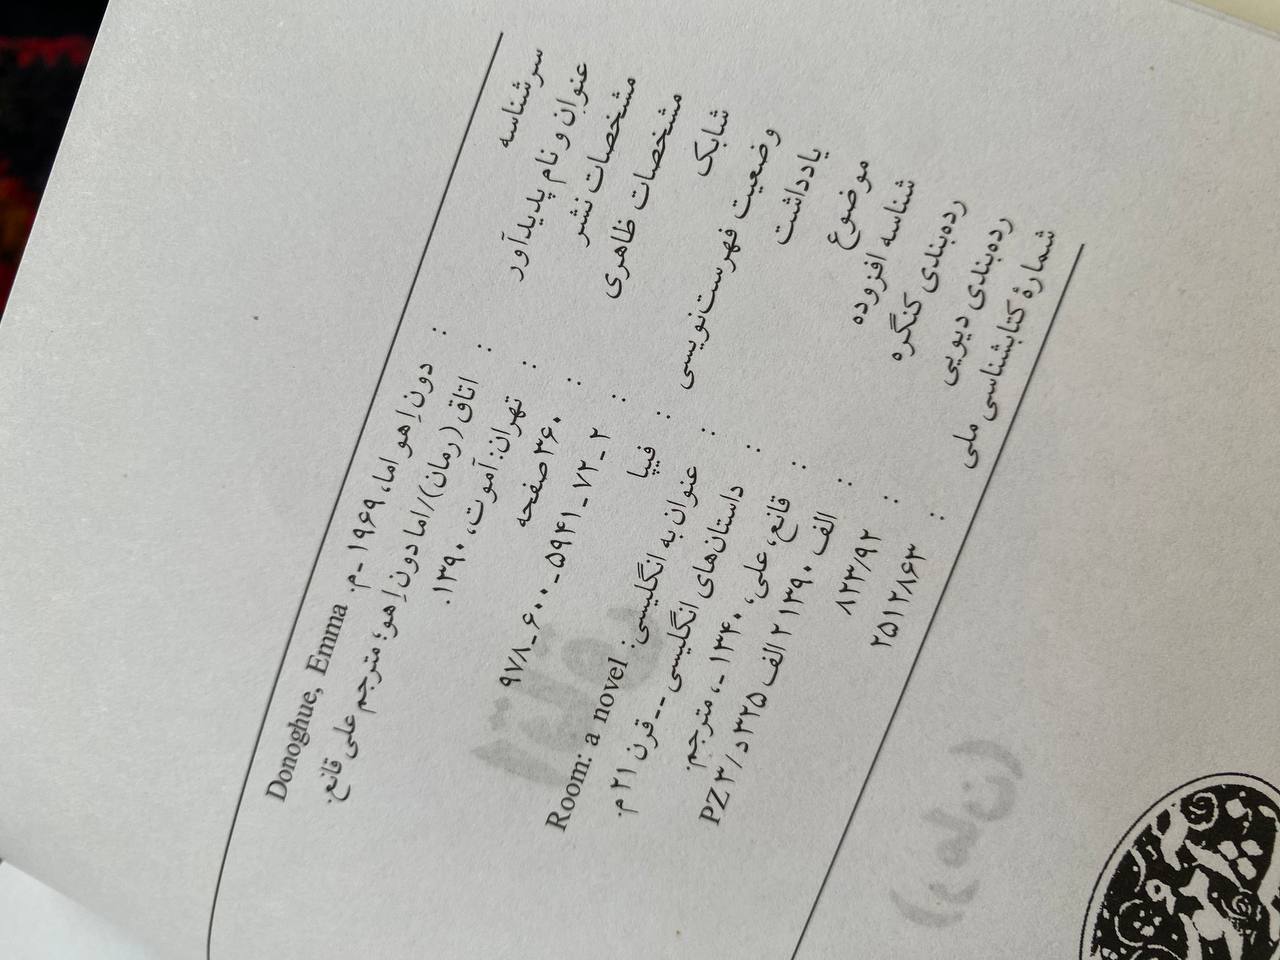 سرشناسه : دون‌اِهو اما، ۱۹۶۹ -م. Donoghue, Emma
عنوان و نام پدیدآور : اتاق (رمان)/اما دون‌اِهو؛ مترجم علی قانع.
مشخصات نشر : تهران: آموت، ۱۳۹۰.
مشخصات ظاهری : ۳۶۰ صفحه
شابک : ۹۷۸-۶۰۰-۵۹۴۱-۷۲-۲
وضعیت فهرست‌نویسی : فیپا
یادداشت : عنوان به انگلیسی: Room: a novel
موضوع : داستان‌های انگلیسی -- قرن ۲۱ م.
شناسه افزوده : قانع، علی، ۱۳۴۰ -، مترجم.
رده‌بندی کنگره : الف ۱۳۹۰ ۲ الف ۳۲۵د/ PZ۳
رده‌بندی دیویی : ۸۲۳/۹۲
شمارهٔ کتابشناسی ملی : ۲۵۱۲۸۶۳
اتاق
(رمان)